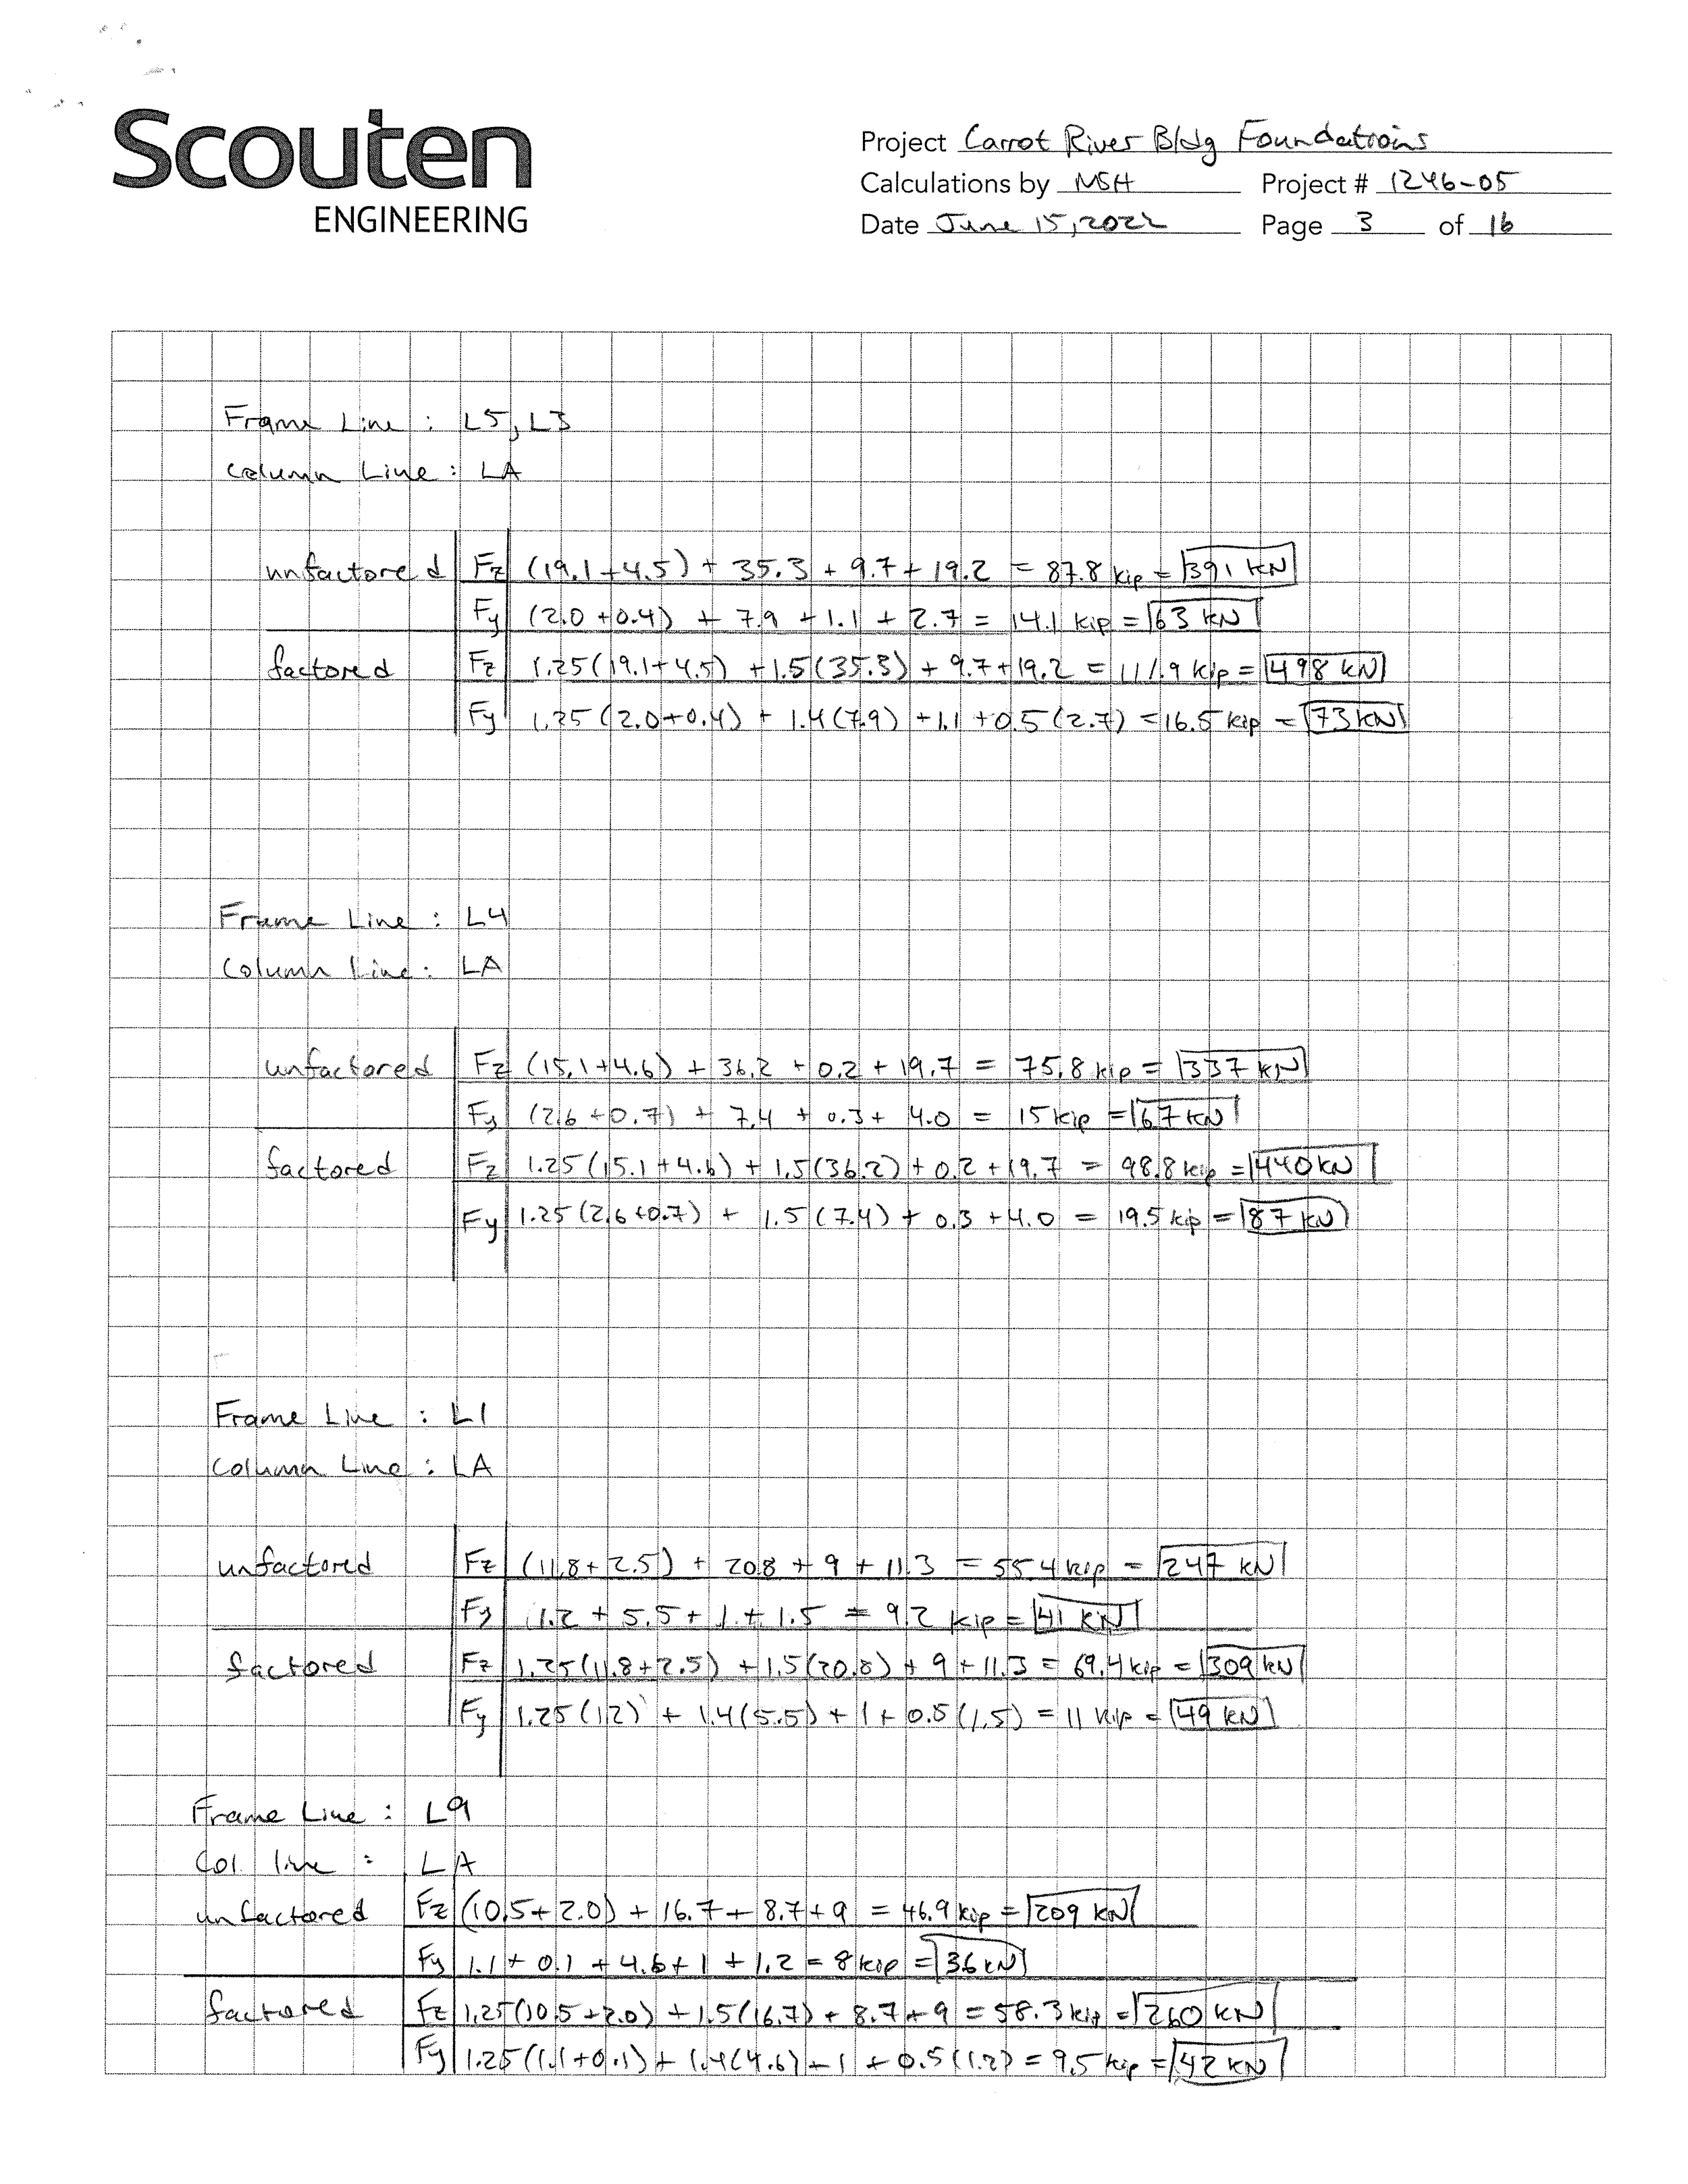 Scouten
ENGINEERING
Project Carrot River Bldg Foundations
Calculations by MSH Project # 1246-05
Date June 15, 2022 Page 3 of 16
Frame Line : L5, L3
Column Line : LA
unfactored Fz (19.1+4.5) + 35.3 + 9.7 + 19.2 = 87.8 kip = 391 kN
Fy (2.0+0.4) + 7.9 + 1.1 + 2.7 = 14.1 kip = 63 kN
factored Fz 1.25(19.1+4.5) + 1.5(35.3) + 9.7+19.2 = 111.9 kip = 498 kN
Fy 1.25(2.0+0.4) + 1.4(7.9) + 1.1 + 0.5(2.7) = 16.5 kip = 73 kN
Frame Line : L4
Column Line : LA
unfactored Fz (15.1+4.6) + 36.2 + 0.2 + 19.7 = 75.8 kip = 337 kN
Fy (2.6+0.7) + 7.4 + 0.3 + 4.0 = 15 kip = 67 kN
factored Fz 1.25(15.1+4.6) + 1.5(36.2) + 0.2 + 19.7 = 98.8 kip = 440 kN
Fy 1.25(2.6+0.7) + 1.5(7.4) + 0.3 + 4.0 = 19.5 kip = 87 kN
Frame Line : L1
Column Line : LA
unfactored Fz (11.8+2.5) + 20.8 + 9 + 11.3 = 55.4 kip = 247 kN
Fy 1.2 + 5.5 + 1 + 1.5 = 9.2 kip = 41 kN
factored Fz 1.25(11.8+2.5) + 1.5(20.8) + 9 + 11.3 = 69.4 kip = 309 kN
Fy 1.25(1.2) + 1.4(5.5) + 1 + 0.5(1.5) = 11 kip = 49 kN
Frame Line : L9
Col. line : LA
unfactored Fz (10.5+2.0) + 16.7 + 8.7 + 9 = 46.9 kip = 209 kN
Fy 1.1 + 0.1 + 4.6 + 1 + 1.2 = 8 kip = 36 kN
factored Fz 1.25(10.5+2.0) + 1.5(16.7) + 8.7 + 9 = 58.3 kip = 260 kN
Fy 1.25(1.1+0.1) + 1.4(4.6) + 1 + 0.5(1.2) = 9.5 kip = 42 kN